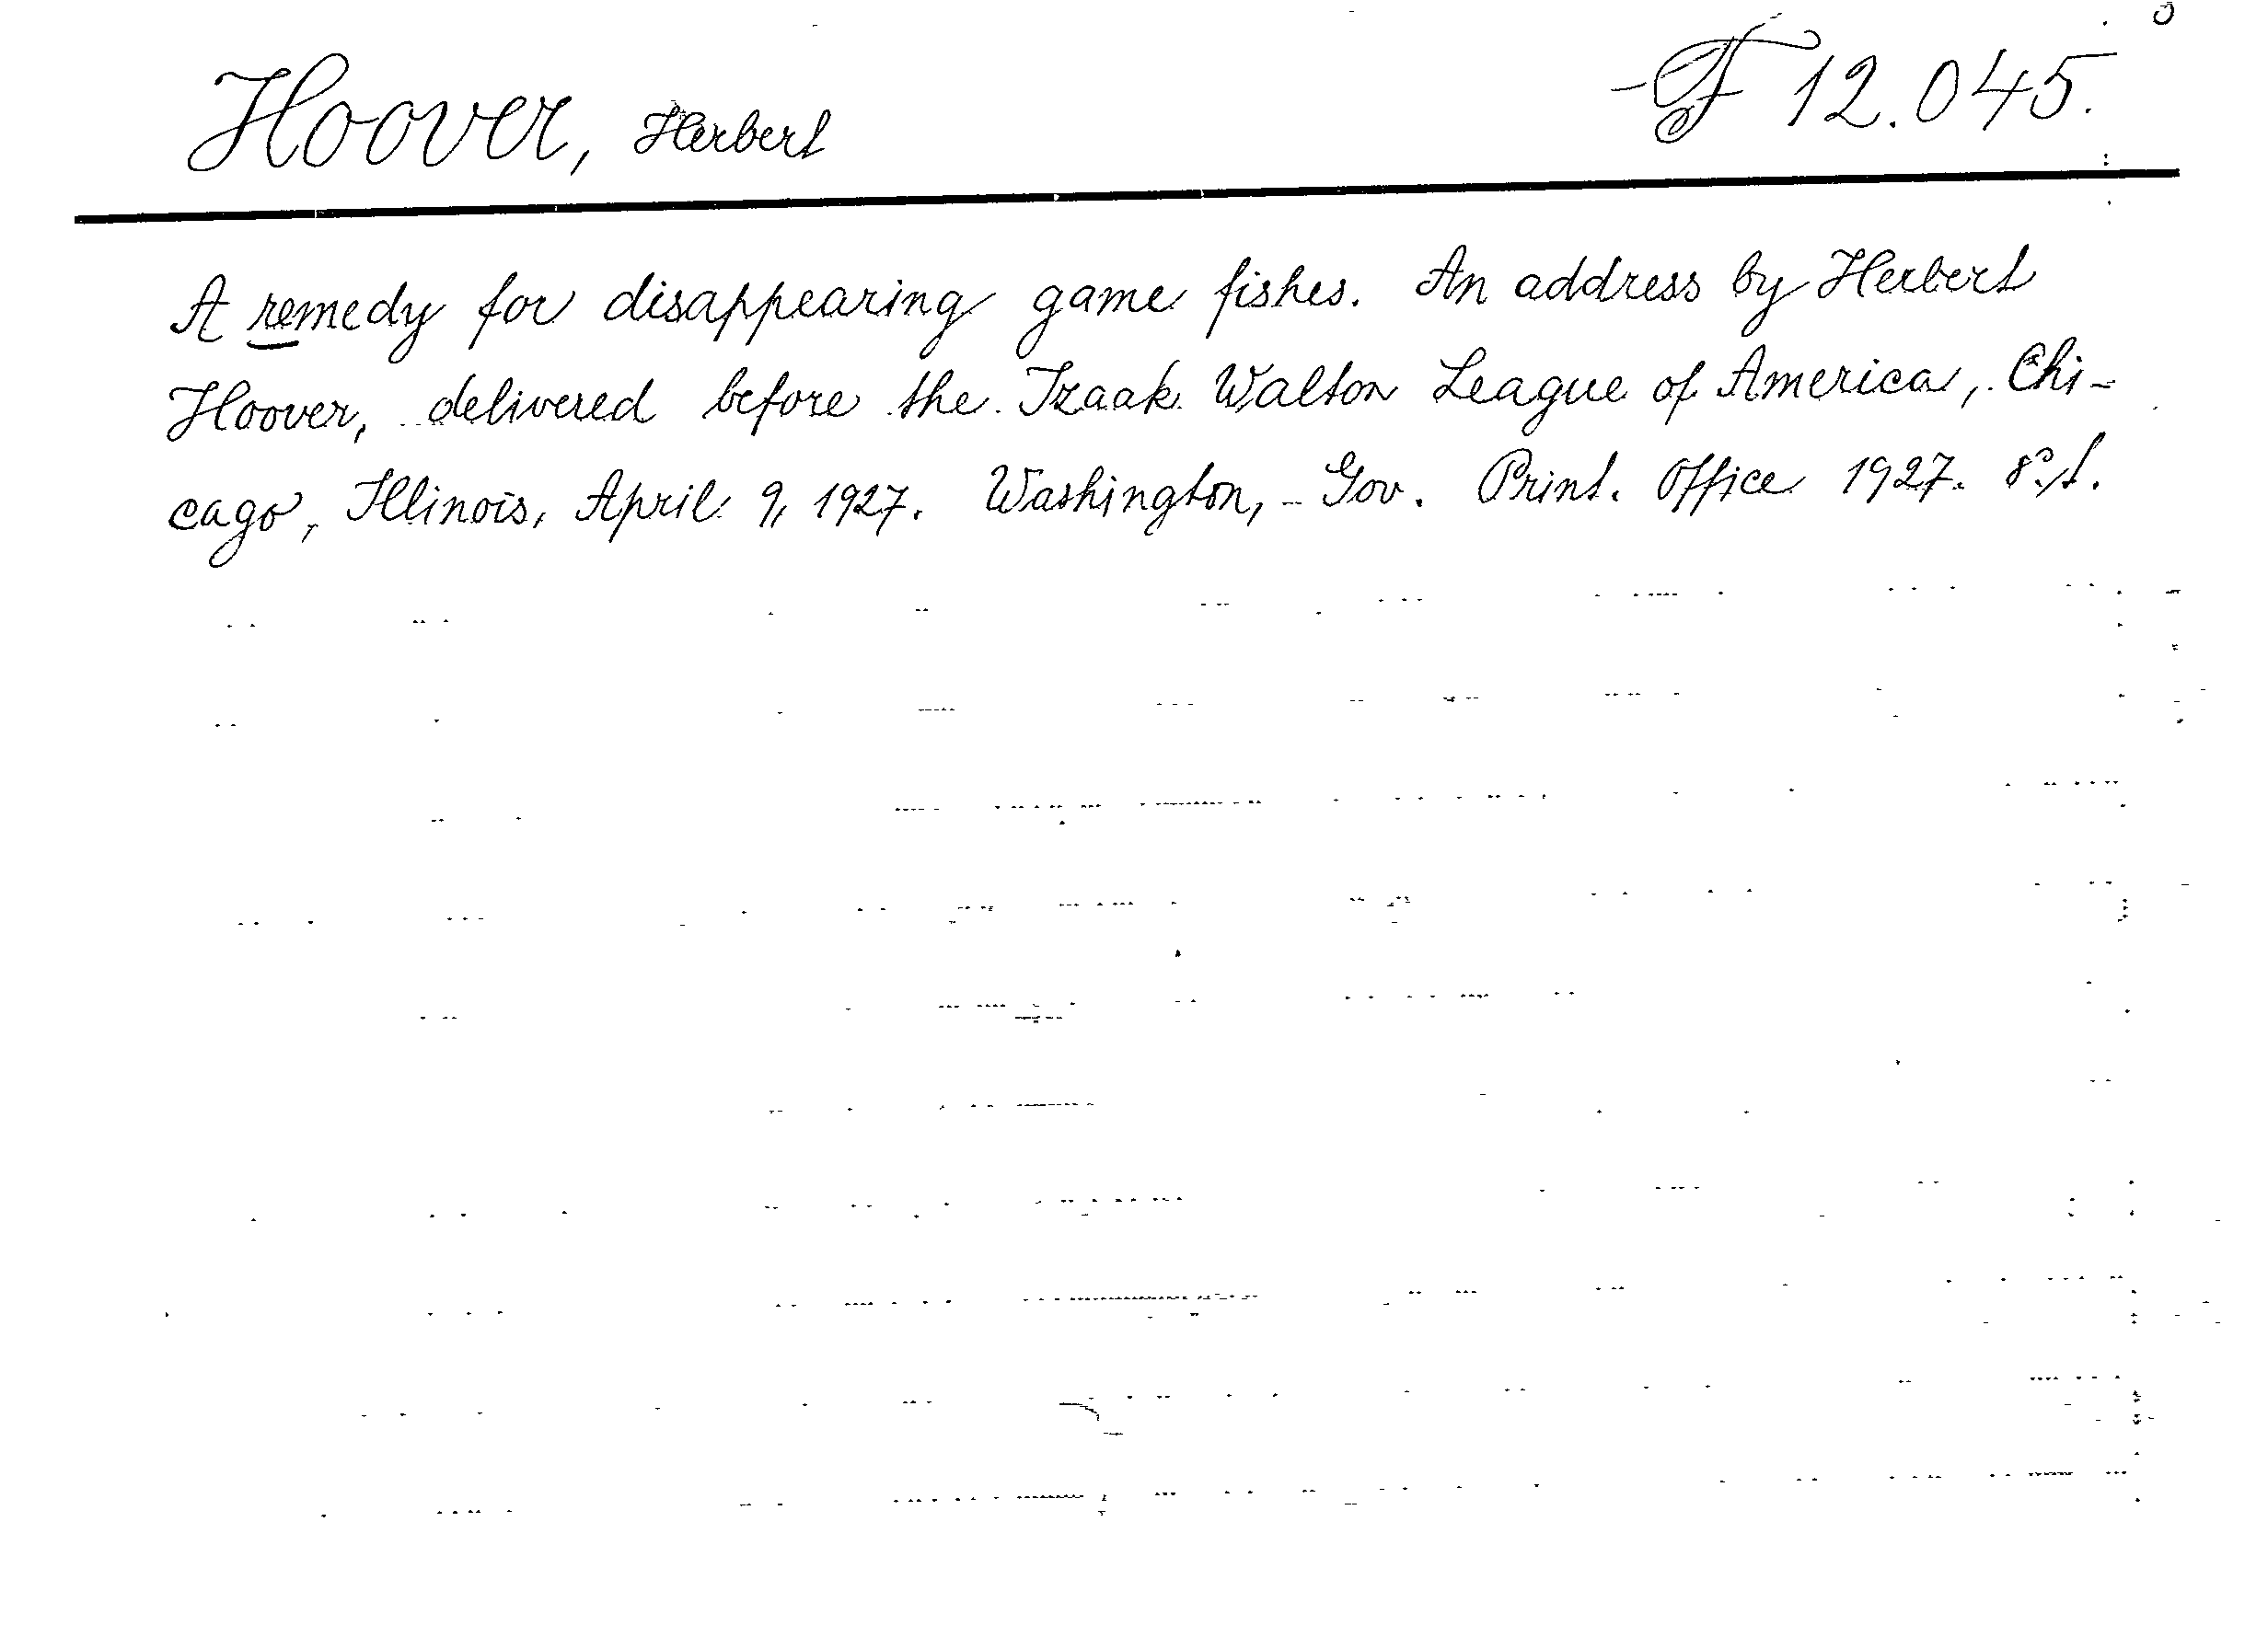 Hoover, Herbert F 12.045.
A remedy for disappearing game fishes. An address by Herbert
Hoover, delivered before the Izaak Walton League of America, Chi-
cago, Illinois, April 9, 1927. Washington, Gov. Print. Office 1927. 8°.